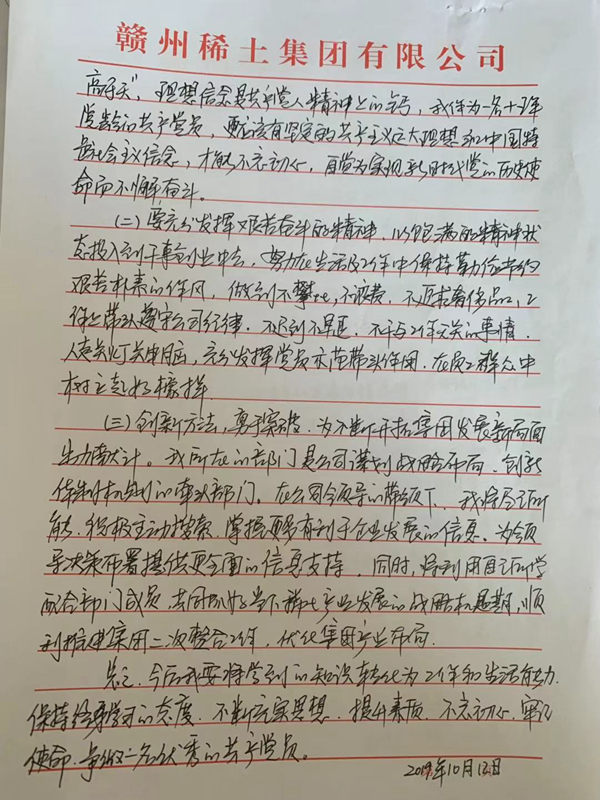 赣州稀土集团有限公司
高于天”，理想信念是共产党人精神上的钙，我作为一名十五年
党龄的共产党员，更应该有坚定的共产主义远大理想和中国特
色社会主义信念，才能不忘初心，自觉为实现新时代党的历史使
命而不懈奋斗。
（二）要充分发挥艰苦奋斗的精神，以饱满的精神状
态投入到干事创业中去，努力在生活及工作中保持勤俭节约
艰苦朴素的作风，做到不攀比，不浪费，不追求奢侈品，工
作上带头遵守公司纪律，不迟到不早退，不干与工作无关的事情，
人走关灯关电脑，充分发挥党员示范带头作用，在员工群众中
树立起好榜样。
（三）创新方法，勇于突破，为不断开拓集团发展新局面
出力献计。我所在的部门是公司谋划战略布局、创新
体制机制的牵头部门。在公司领导的带领下，我将尽己所
能，积极主动搜索、掌握更多有利于企业发展的信息，为领
导决策部署提供更全面的信息支持，同时，将利用自己所学
配合部门成员，共同抓好当下稀土产业发展的战略机遇期，顺
利推进集团二次整合工作，优化集团产业布局。
总之，今后我要将学到的知识转化为工作和生活的动力，
保持终身学习的态度，不断充实思想，提升素质，不忘初心，牢记
使命，争做一名优秀的共产党员。
2019年10月12日